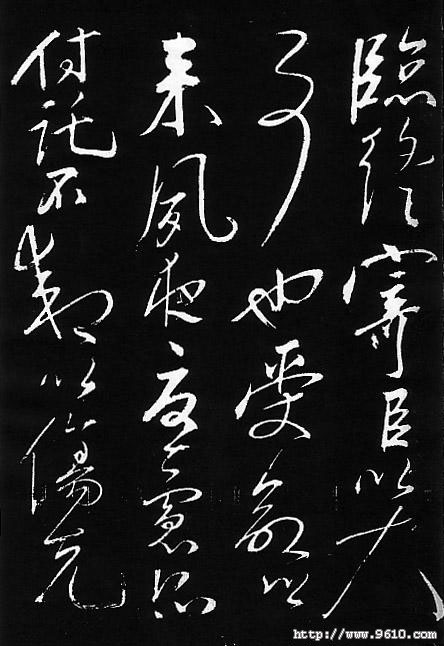 臨終寄臣以大
事也受命以
來夙夜憂慮恐
付託不效以傷先
http://www.9610.com